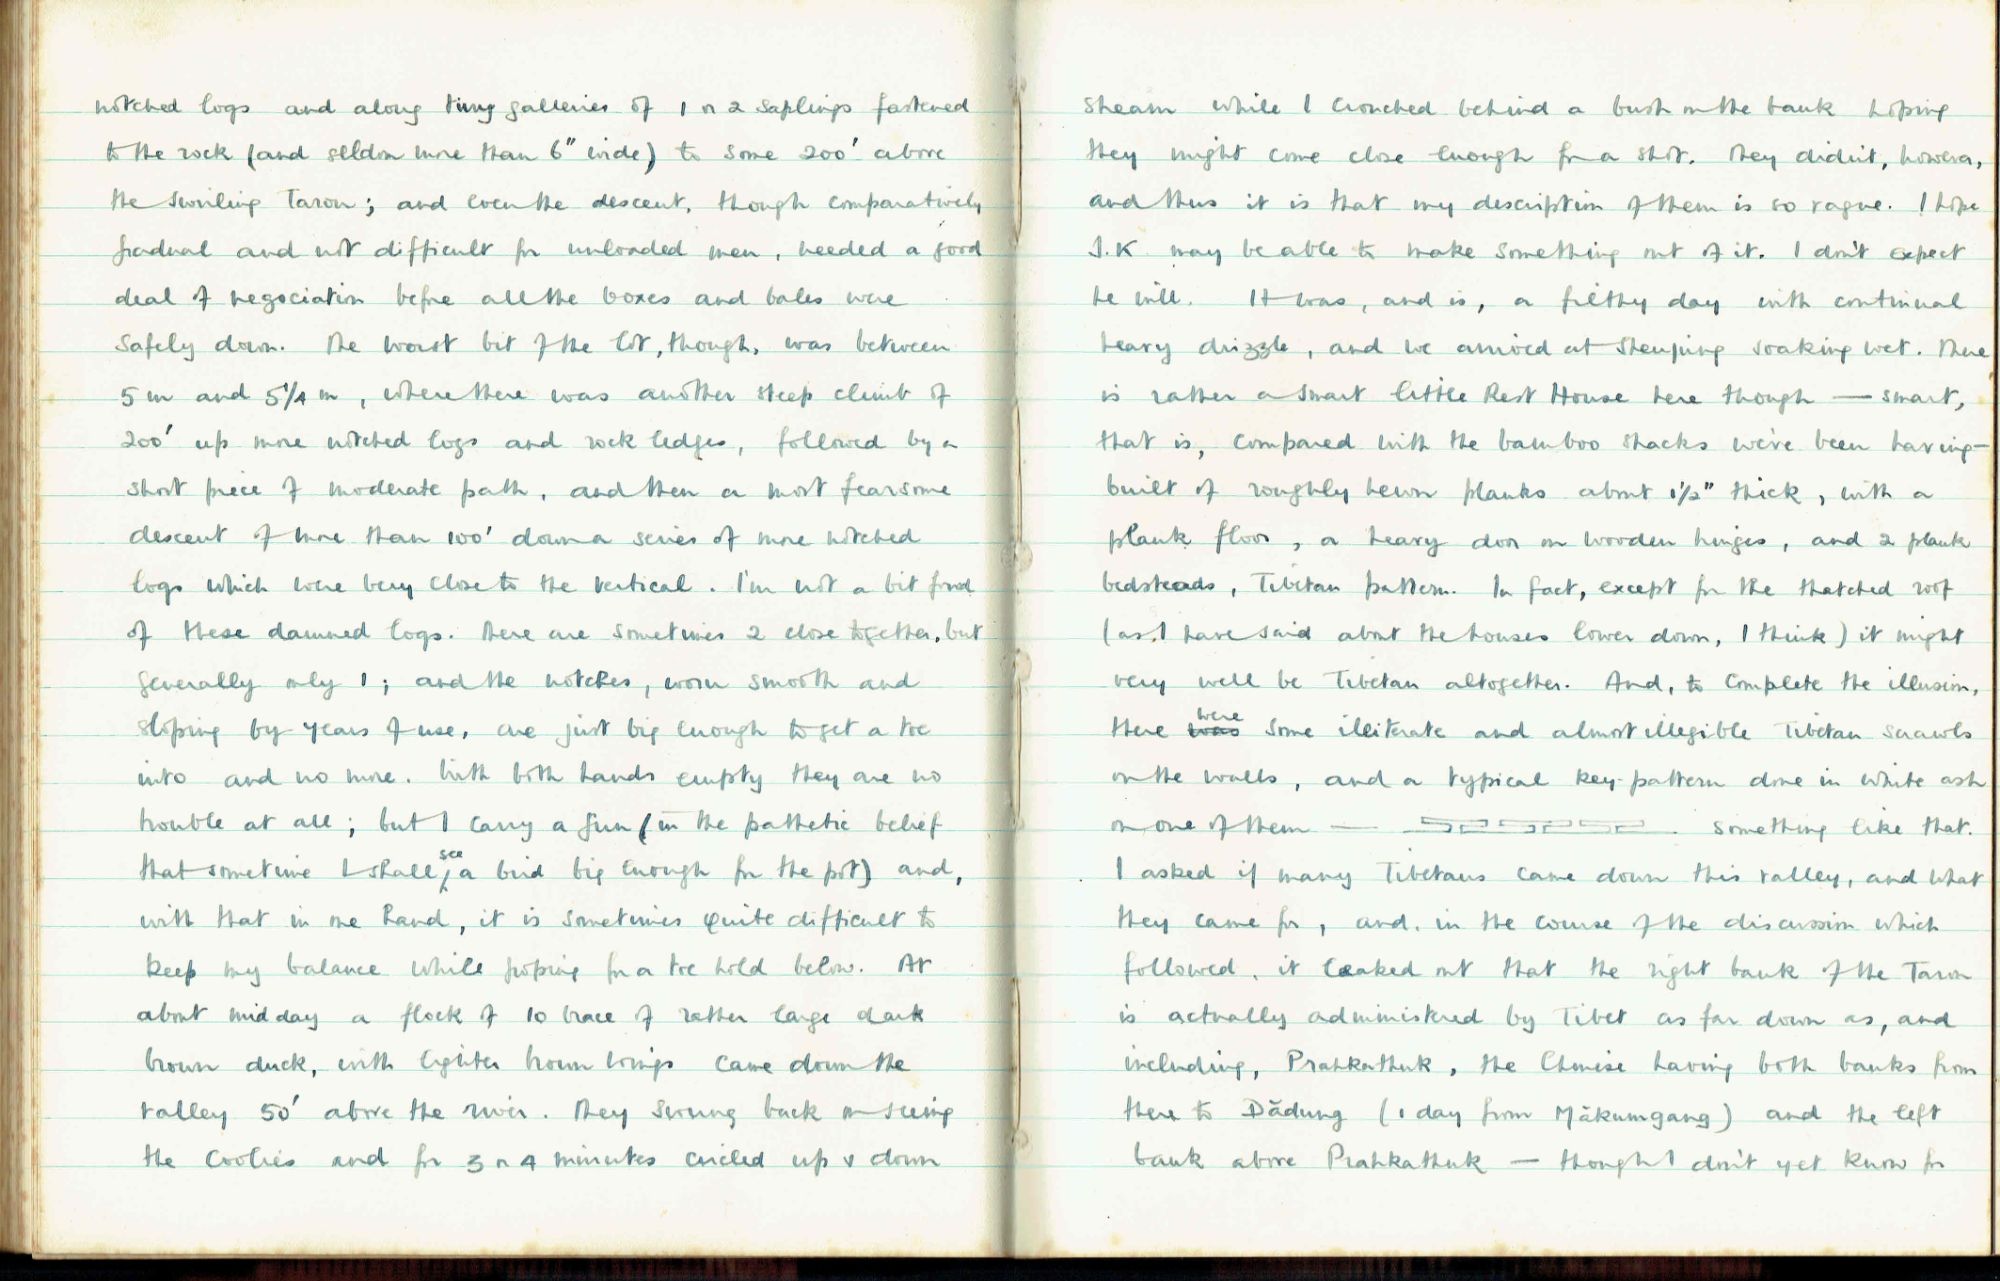 notched logs and along tiny galleries of 1 or 2 saplings fastened
to the rock (and seldom more than 6" wide) to some 200' above
the swirling Taron; and even the descent, though comparatively
gradual and not difficult for unloaded men, needed a good
deal of negociation before all the boxes and bales were
safely down. The worst bit of the lot, though, was between
5 m and 5 1/4 m, where there was another steep climb of
200' up more notched logs and rock ledges, followed by a
short piece of moderate path, and then a most fearsome
descent of more than 100' down a series of more notched
logs which were very close to the vertical. I'm not a bit fond
of these damned logs. There are sometimes 2 close together, but
generally only 1; and the notches, worn smooth and
sloping by years of use, are just big enough to get a toe
into and no more. With both hands empty they are no
trouble at all; but I carry a gun (in the pathetic belief
that sometime I shall see a bird big enough for the pot) and,
with that in one hand, it is sometimes quite difficult to
keep my balance while groping for a toe hold below. At
about midday a flock of 10 brace of rather large dark
brown duck, with lighter brown wings came down the
valley 50' above the river. They swung back on seeing
the coolies and for 3 or 4 minutes circled up & down
stream while I crouched behind a bush on the bank hoping
they might come close enough for a shot. They didn't, however,
and thus it is that my description of them is so vague. I hope
J.K may be able to make something out of it. I don't expect
he will. It was, and is, a filthy day with continual
heavy drizzle, and we arrived at soaking wet. There
is rather a smart little Rest House here though — smart,
that is, compared with the bamboo shacks we've been having —
built of roughly hewn planks about 1 1/2" thick, with a
plank floor, a heavy door on wooden hinges, and 2 plank
bedsteads, Tibetan pattern. In fact, except for the thatched roof
(as I have said about the houses lower down, I think) it might
very well be Tibetan altogether. And, to complete the illusion,
there was were some illiterate and almost illegible Tibetan scrawls
on the walls, and a typical key-pattern done in white ash
on one of them — something like that.
I asked if many Tibetans came down this valley, and what
they came for, and in the course of the discussion which
followed, it leaked out that the right bank of the Taron
is actually administered by Tibet as far down as, and
including, Prahkathuk, the Chinese having both banks from
there to Dādung (1 day from Mākumgang) and the left
bank above Prahkathuk — though I don't yet know for